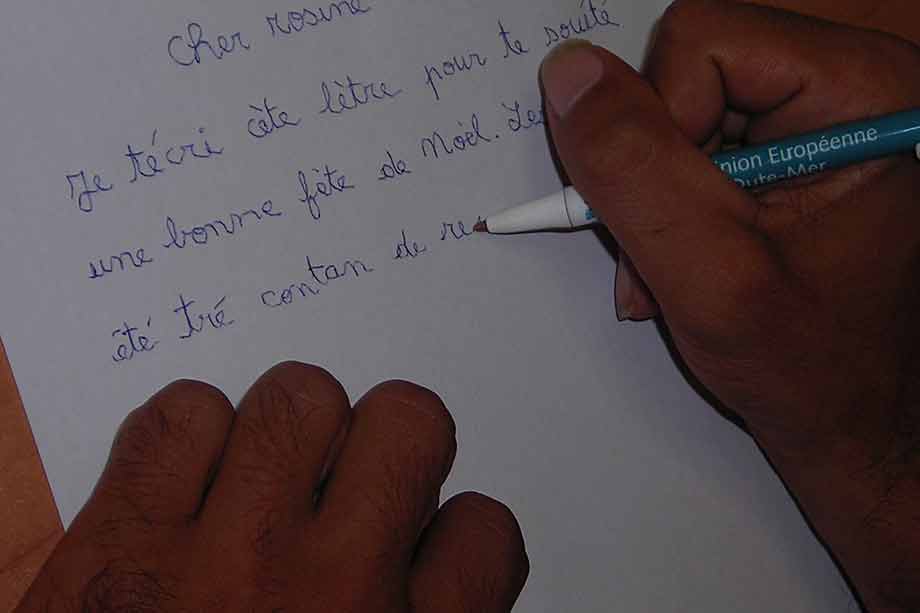 Cher rosine
Je técri cète lètre pour te souété
une bonne fète de Noèl.
été tré contan de re
nion Européenne
Oute-Mer